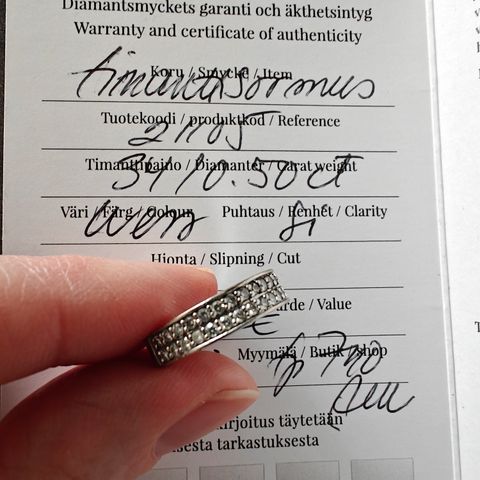 Diamantsmyckets garanti och äkthetsintyg
Warranty and certificate of authenticity
Koru / Smycke / Item
timanttisormus
Tuotekoodi / produktkod / Reference
Timanttipaino / Diamanter / Carat weight
31/0.50ct
Väri / Färg / Colour Puhtaus / Renhet / Clarity
Si
Hionta / Slipning / Cut
/ Value
€
Myymälä / Butik / Shop
täytetään
tarkastuksesta